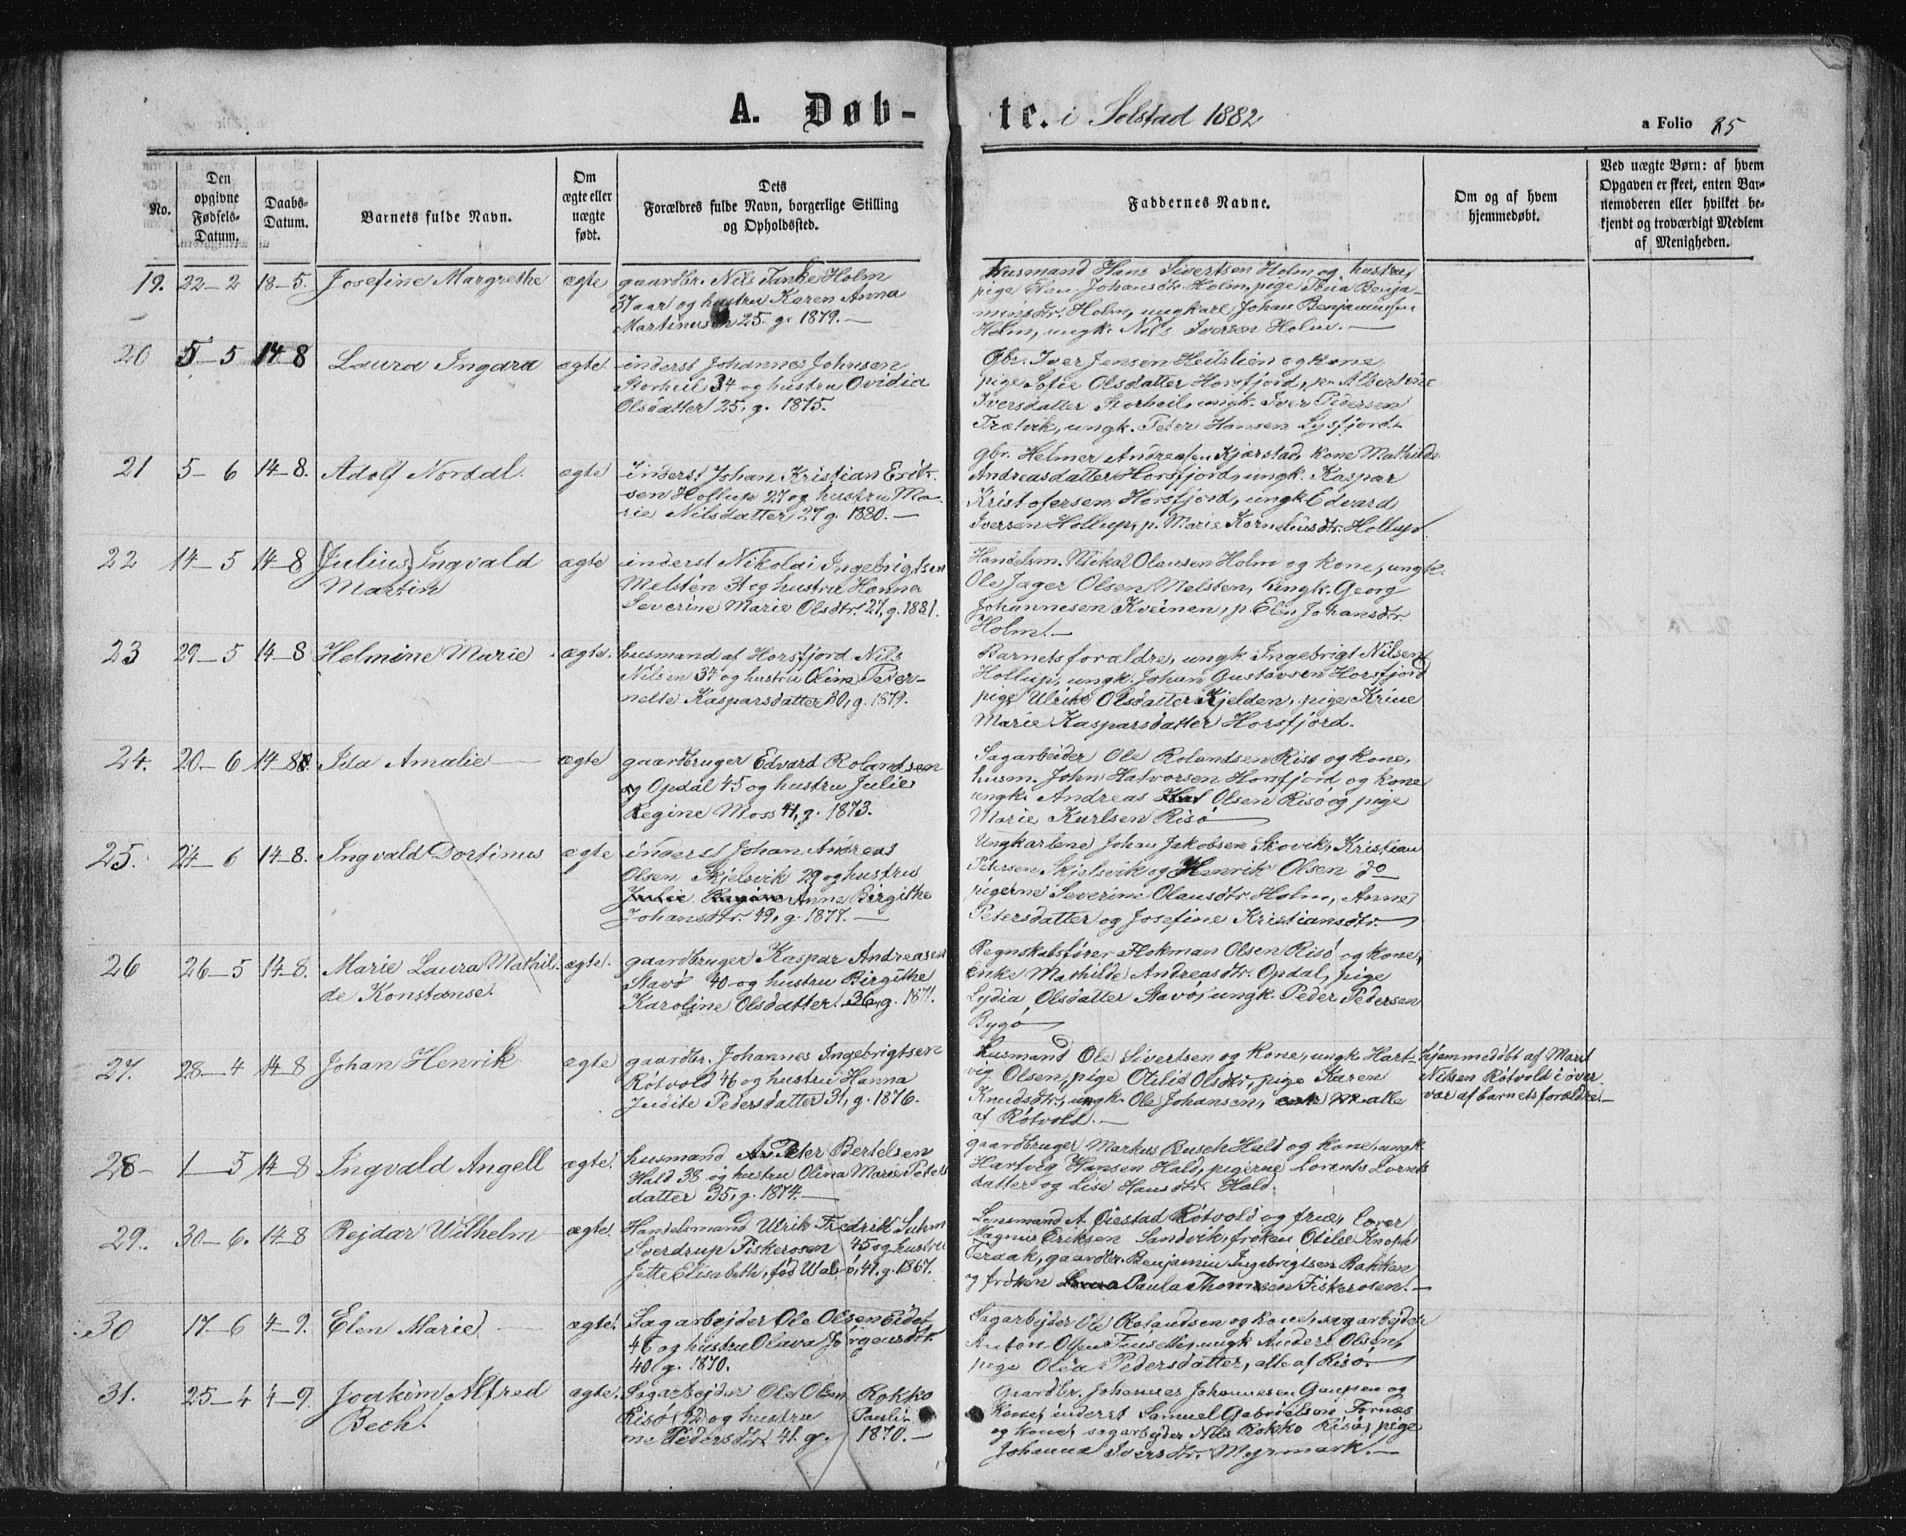 A. Døb-
te. i Solstad 1882
a Folio 85
No.
Den
opgivne
Fødsels-
Datum.
Daabs-
Datum.
Barnets fulde Navn.
Om
ægte eller
uægte
født.
Dets
Forældres fulde Navn, borgerlige Stilling
og Opholdssted.
Faddernes Navne.
Om og af hvem
hjemmedøbt.
Ved uægte Børn: af hvem
Opgaven er skeet, enten Bar-
nemoderen eller hvilket be-
kjendt og troværdigt Medlem
af Menigheden.
19. 22–2 18–5. Josefine Margrethe ægte
gaardbr. Nils Tinke Holm
37 aar og hustru Karen Anna
Martinusen 25. g. 1879.—
Husmand Hans Sivertsen Holm og hustru,
pige Elen Johansdtr. Holm, pige Benja-
minsdtr. Holm, ungkarl Johan Benjaminsen
Holm, ungk. Nils Iversen Holm.—
20 5–5 14–8 Laura Ingara ægte
inderst Johannes Johnsen
Storheil 34 og hustru Ovidia
Olsdatter 25, g. 1875.
Gbr. Iver Jensen Heilslien og kone,
pige Sofie Olsdatter Horsfjord, p. Albertine
Iversdatter Storheil, ungk. Iver Pedersen
Trælvik, ungk. Peter Hansen Lysfjord.
21 5–6 14–8. Adolf Norddl. ægte
Inderst Johan Kristian Erik-
sen Hollup 27 og hustru Ma-
rie Nilsdatter 27 g. 1880.—
gbr. Helmer Andreasen Kjærstad, kone Mathilde
Andreasdatter Horsfjord, ungk. Kaspar
Kristofersen Horsfjord, ungk. Edvard
Iversen Hollup, p. Marie Korneliusdtr. Hollup.
22 14–5 14–8 (Julius) Ingvald
Martin ægte
inderst Nikolai Ingebrigtsen
Melsten 31 og hustru Hanna
Severine Marie Olsdtr. 27, g. 1881.
Handelsm. Mikal Olausen Holm og kone, ungk.
Ole Jager Olsen Melsten, ungk. Georg
Johannesen Kveinen, p. Elen Johansdtr.
Holm.—
23 29–5 14–8 Helmine Marie ægte.
husmand af Horsfjord Nils
Nilsen 37 og hustru Olina Peter-
nelle Kasparsdatter 30, g. 1879.
Barnets foraldre, ungk. Ingebrigt Nilsen
Hollup, ungk. Johan Gustavsen Horsfjord
pige Ulrike Olsdatter Kjelden, pige Krine
Marie Kasparsdatter Horsfjord.
24. 20–6 14–8 Ida Amalie — ægte
gaardbruger Edvard Rolandsen
Opdal 45 og hustru Julie
Regine Moss 41, g. 1873.
Sagarbeider Ole Rolandsen Risø og kone,
husm. John Halvorsen Horsfjord og kone
ungk. Andreas Olsen Risø og pige
Marie Karlsen Risø
25. 24–6 14–8. Ingvald Dortinus ægte
inderst Johan Andreas
Olsen Skjelsvik 29 og hustru
Julie Regine Anne Birgithe
Johansdtr. 49, g. 1877.—
Ungkarlene Johan Jakobsen Skovik, Kristian
Petersen Skjelsvik og Henrik Olsen do
pigerne Severine Olausdtr. Holm, Anne
Petersdatter og Josefine Kristiansdtr.
26 26–5 14–8. Marie Laura Mathil-
de Konstanse. ægte.
gaardbruger Kaspar Andreasen
Stavø 40 og hustru Birgithe
Karoline Olsdatter 36, g. 1871.
Regnskabsfører Flokman Olsen Risø og kone,
enke Mathilde Andreasdtr. Opdal, pige
Lydia Olsdatter Stavø, ungk. Peder Pedersen
Bygø
27. 28–4 14–8 Johan Henrik ægte
gaardbr. Johannes Ingebrigtsen
Røtvold 46 og hustru Hanna
Judite Pedersdatter 31, g. 1876.
husmand Ole Sivertsen og kone, ungk. Hart-
vig Olsen, pige Otilie Olsdtr., pige Karen
Knudsdtr., ungk. Ole Johansen, alle
af Røtvold.—
hjemmedøbt af Marit
Nilsen Røtvold i over-
vær af barnets forældre.—
28– 1–5 14–8 Ingvald Angell ægte.
husmand Peter Bertelsen
Hald 38 og hustru Olina Marie Peters
datter 35, g. 1874.—
gaardbruger Markus Busch Hald og kone, ungk.
Hartvig Hansen Hald, pigerne Lorents Lornts
datter og Lise Hansdtr. Hald.
29. 30–6. 14–8 Rejdar Wilhelm ægte.
Handelsmand Ulrik Fredrik Suhm
Sverdrup Fiskerosen 45 og hustru
Jette Elisabeth, fød Walsø, 41. g. 1867.
Lensmand A. Øiestad Røtvold og frue, lærer
Magnus Eriksen Sandvik, frøken Otilie Knoph
Teraak, gaardbr. Benjamin Ingebrigtsen Bakken
og frøken Paula Thomsen Fiskerosen.—
30 17–6 4–9. Elen Marie — ægte.
Sagarbejder Ole Olsen Eidet
46 og hustru Olava Jørgensdtr.
40, g. 1870.
Sagarbejder Ole Rolandsen og kone, sagarbejder
Anton Olsen, ungk. Anders Olsen,
pige Olea Pedersdatter, alle af Risø.
31. 25–4 4–9. Joakim Alfred
Bech. ægte.
Sagarbejder Ole Olsen Rokko
Risø 42 og hustru Pauli-
ne Pedersdtr. 41. g. 1870.—
Gaardbr. Johannes Johannesen Gaupen og
Kone, inderst Samuel Gabrielsen Fornes
og kone, sagarbejder Nils Rokko Risø, pige
Johanna Iversdtr. Myrmark.—